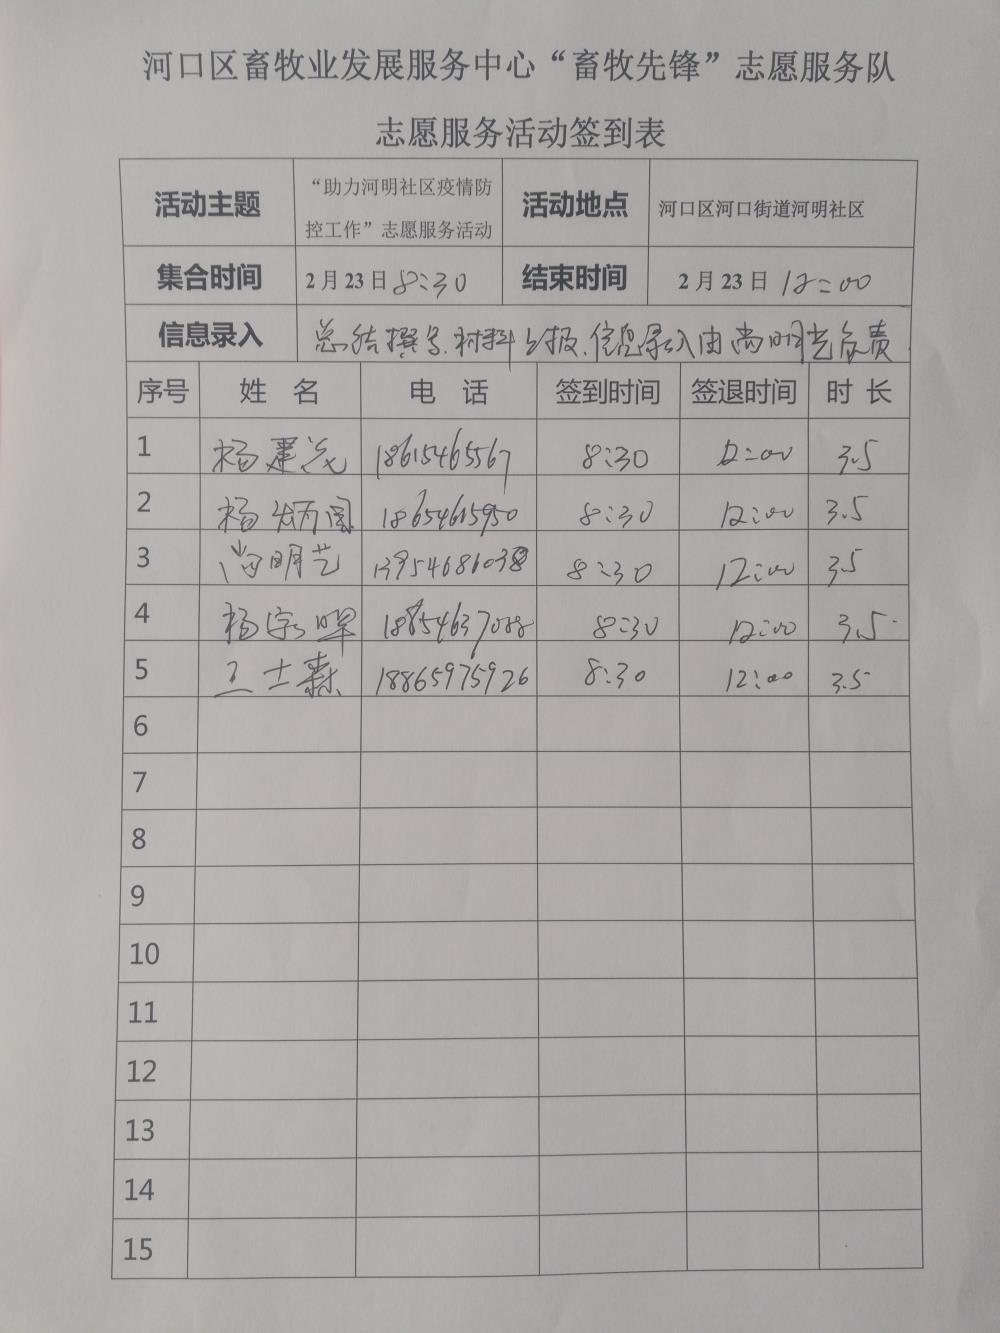 河口区畜牧业发展服务中心“畜牧先锋”志愿服务队
志愿服务活动签到表
活动主题 “助力河明社区疫情防 活动地点 河口区河口街道河明社区
控工作”志愿服务活动
集合时间 2月23日 8:30 结束时间 2月23日 12:00
信息录入 总结撰写、材料上报、信息录入由尚明艺负责.
序号 姓 名 电 话 签到时间 签退时间 时 长
1 杨建 18615465567 8:30 12:00 3.5
2 杨炳国 18654615950 8:30 12:00 3.5
3 尚明艺 13954686038 8:30 12:00 3.5
4 杨 8:30 12:00 3.5
5 王士森 18865975926 8:30 12:00 3.5
6
7
8
9
10
11
12
13
14
15